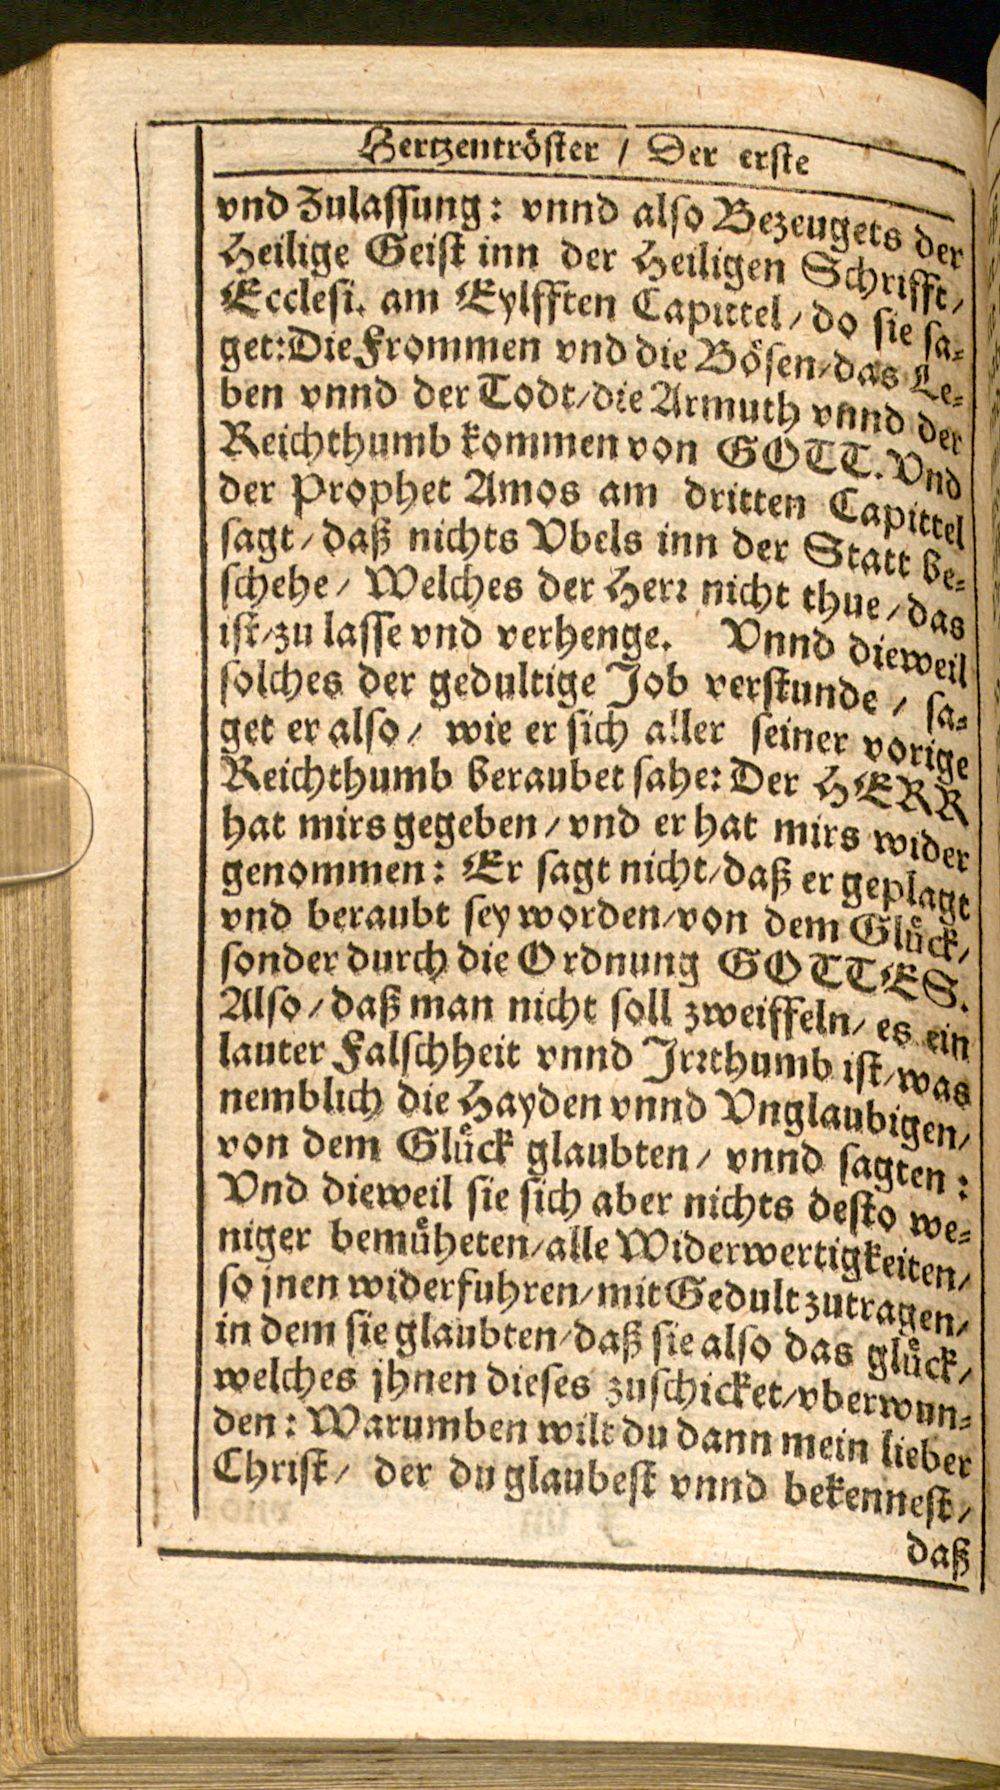 Hertzentröster / Der erste
vnd Zulassung: vnnd also Bezeugets der
Heilige Geist inn der Heiligen Schrifft /
Ecclesi. am Eylfften Capittel / do sie sa-
get: Die Frommen vnd die Bösen / das Le-
ben vnnd der Todt / die Armuth vnnd der
Reichthumb kommen von GOTT. Vnd
der Prophet Amos am dritten Capittel
sagt / daß nichts Vbels inn der Statt be-
schehe / Welches der Herr nicht thue / das
ist / zu lasse vnd verhenge. Vnnd dieweil
solches der gedultige Job verstunde / sa-
get er also / wie er sich aller seiner vorige
Reichthumb beraubet sahe: Der HERR
hat mirs gegeben / vnd er hat mirs wider
genommen: Er sagt nicht / daß er geplagt
vnd beraubt sey worden / von dem Glůck /
sonder durch die Ordnung GOTTES.
Also / daß man nicht soll zweiffeln / es ein
lauter Falschheit vnnd Irrthumb ist / was
nemblich die Hayden vnnd Vnglaubigen /
von dem Glůck glaubten / vnnd sagten:
Vnd dieweil sie sich aber nichts desto we-
niger bemůheten / alle Widerwertigkeiten /
so jnen widerfuhren / mit Gedult zutragen /
in dem sie glaubten / daß sie also das glůck /
welches jhnen dieses zuschicket / vberwun-
den: Warumben wilt du dann mein lieber
Christ / der du glaubest vnnd bekennest /
daß